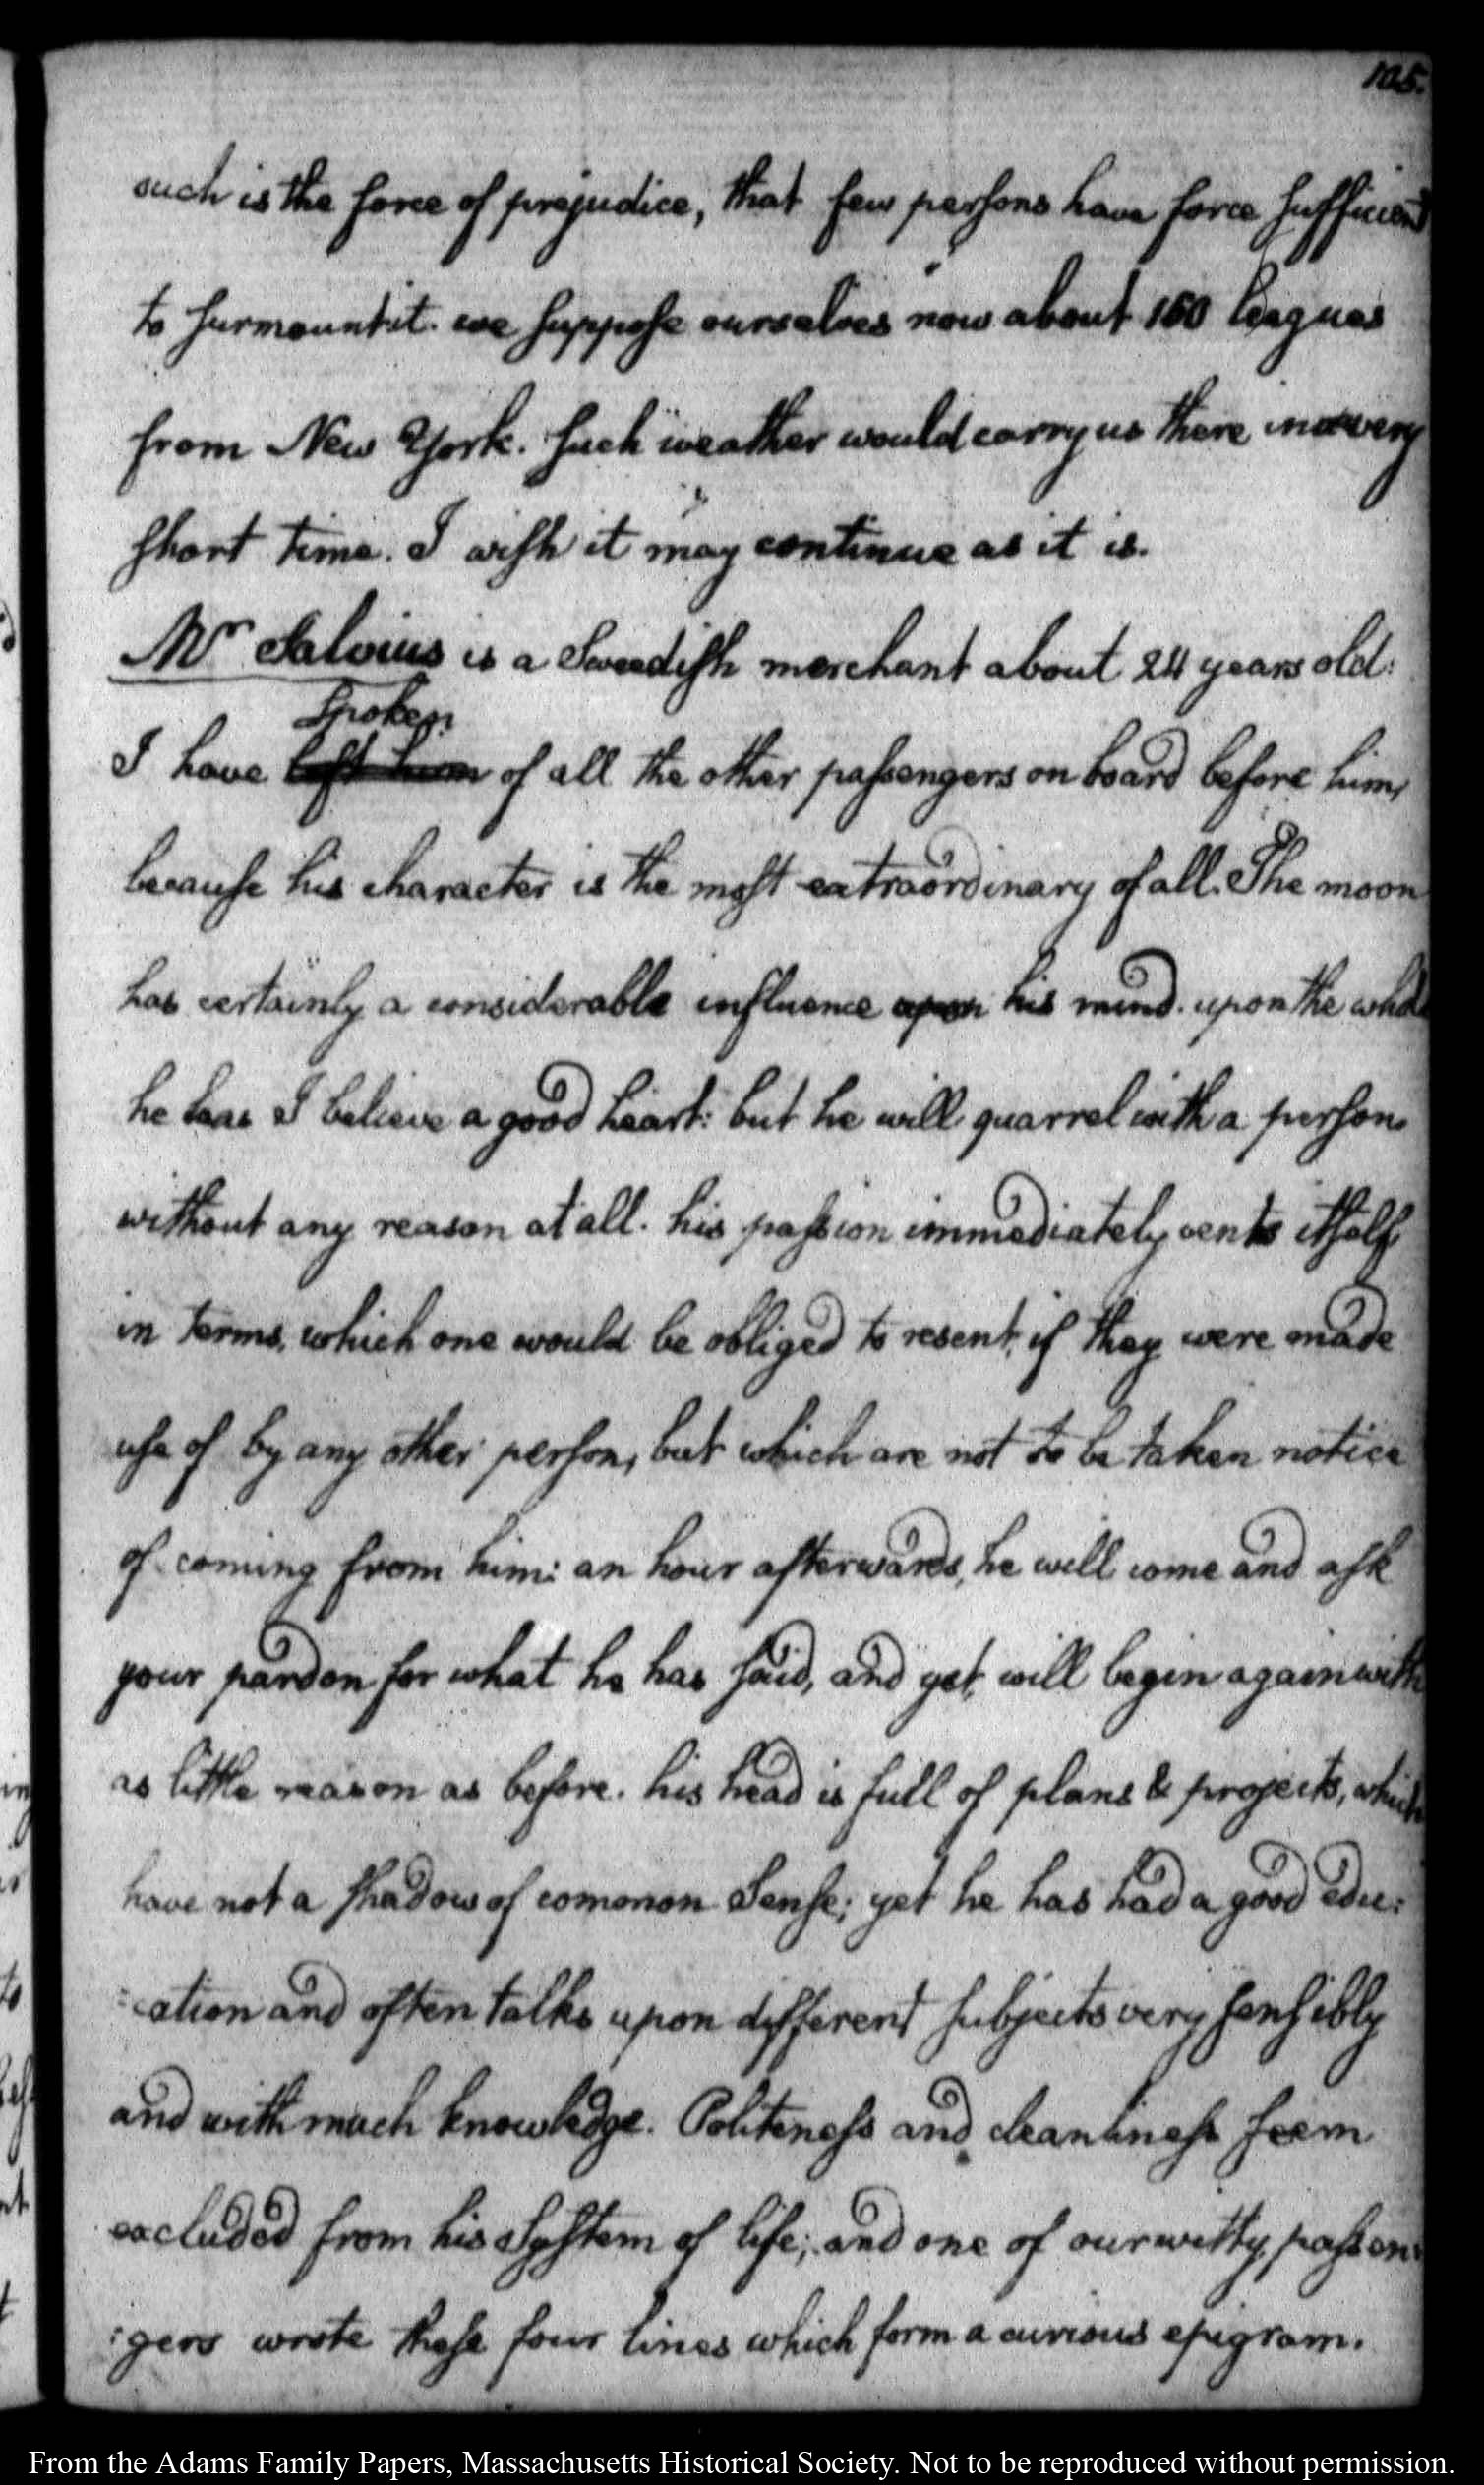 105.
such is the force of prejudice, that few persons have force sufficient
to surmount it. we suppose ourselves now about 150 leagues
from New York. such weather would carry us there in a very
short time. I wish it may continue as it is.
Mr Salvius is a Sweedish merchant about 24 years old:
Spoken
I have left him of all the other passengers on board before him,
because his character is the most extraordinary of all. The moon
has certainly a considerable influence upon his mind. upon the whole
he has I believe a good heart: but he will quarrel with a person
without any reason at all. his passion immediately vents itself
in terms, which one would be obliged to resent, if they were made
use of by any other person, but which are not to be taken notice
of coming from him: an hour afterwards, he will come and ask
your pardon for what he has said, and yet, will begin again with
as little reason as before. his head is full of plans & projects, which
have not a shadow of common Sense; yet he has had a good edu:
:cation and often talks upon different subjects very sensibly
and with much knowledge. Politeness and cleanliness seem
excluded from his System of life; and one of our witty passen:
:gers wrote these four lines which form a curious epigram.
From the Adams Family Papers, Massachusetts Historical Society. Not to be reproduced without permission.